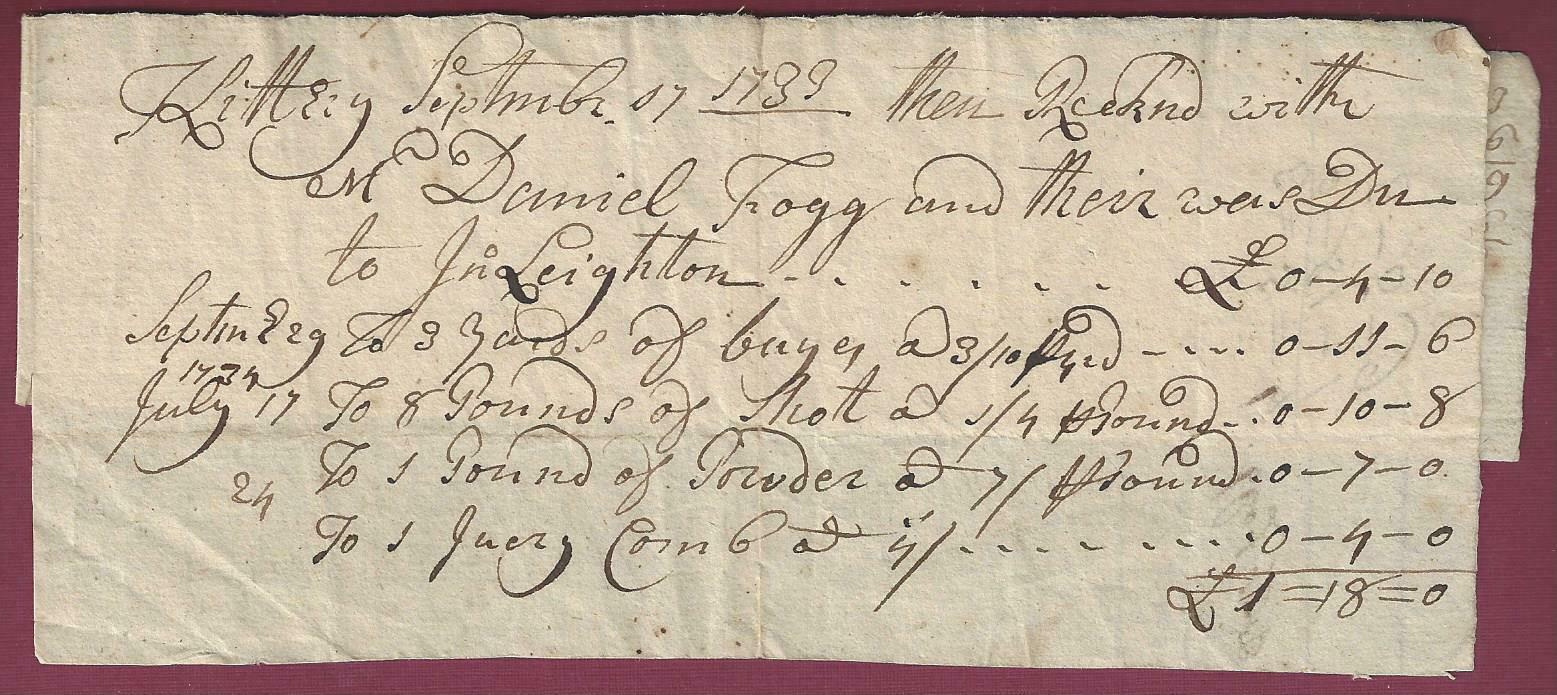 Kittery Septmbr. 17 1733 then Recknd with
Mr Daniel Fogg and their was Du
to Jno Leighton - - - - - - - £ 0-4-10
To 3 Yards of bayes a 3/10 pr Yard - - - - 0-11-6
1734
July 17 To 8 Pounds of Shot a 1/4 pr Pound - - 0-10-8
24 To 1 Pound of Powder a 7/ pr Pound - 0-7-0
To 1 Juery Comb at 4/ - - - - - - - - 0-4-0
£ 1=18=0